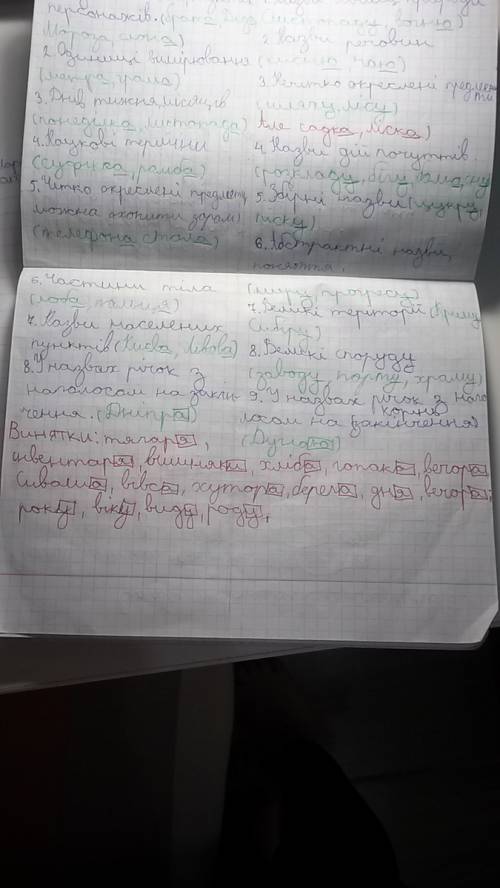 персонажів. (брата, Діда
Мороза, слона)
2. Одиниці вимірювання
(метра, грама)
3. Днів тижня, місяців
(понеділка, листопада)
4. Наукові терміни
(суфікса, ромба)
5. Чітко окреслені предмети,
можна охопити зором)
(телефона стола)
6. Частини тіла
(лоба,
7. Назви населених
пунктів (Києва, Львова)
8. У назвах річок з
наголосом на закін-
чення. (Дніпра)
2. Назви речовин
3. Нечітко окреслені предмети
Але садка, ліска)
4. Назви дій почуттів.
(розкладу, болю,
5. Збірні назви (цукру,
піску)
6. Абстрактні назви,
поняття.
(миру, прогресу)
7. Великі території (Криму
Сибіру)
8. Великі споруди
(заводу, порту, храму)
9. У назвах річок з наго
лосом на (закінчення)
корінь
(Дунаю)
Винятки: тягаря,
інвентаря, вишняка, хліба, гопака, вечора
вівса, хутора, берега, дня, вечора,
року, віку, виду, роду,